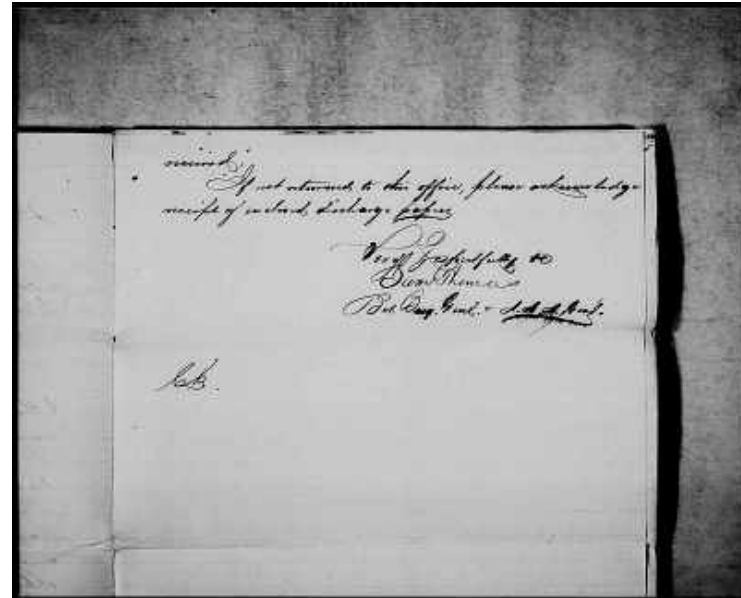 received."
If not returned to this office, please acknowledge
receipt of enclosed discharge papers
Very Respectfully &c
Bvt. Brig. Genl. & A. A. A. Genl.